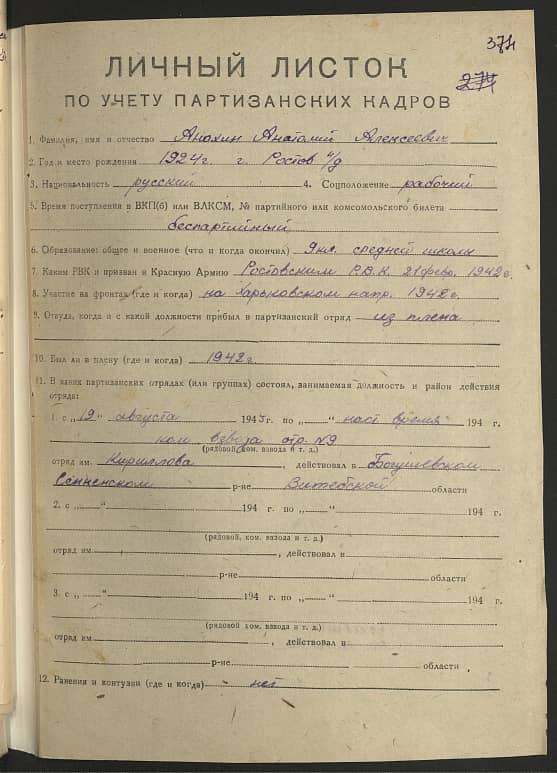 374
274
ЛИЧНЫЙ ЛИСТОК
ПО УЧЕТУ ПАРТИЗАНСКИХ КАДРОВ
1. Фамилия, имя и отчество Анохин Анатолий Алексеевич
2. Год и место рождения 1924г. г. Ростов н/д
3. Национальность русский 4. Соцположение рабочий
5. Время поступления в ВКП(б) или ВЛКСМ, № партийного или комсомольского билета
беспартийный
6. Образование: общее и военное (что и когда окончил) 9 кл. средней школы
7. Каким РВК и призван в Красную Армию Ростовским Р.В.К. 21 февр. 1942г.
8. Участие на фронтах (где и когда) на Харьковском напр. 1942г.
9. Откуда, когда и с какой должности прибыл в партизанский отряд из плена
10. Был ли в плену (где и когда) 1942г.
11. В каких партизанских отрядах (или группах) состоял, занимаемая должность и район действия
отряда:
1. с „19“ августа 1943г. по „—“ наст время 194 г.
ком взвода отр. №9
(рядовой, ком. взвода и т. д.)
отряд им. Кириллова, действовал в Богушевском
Сенненском р-не Витебской области
2. с „—“ 194 г. по „—“ 194 г.
(рядовой, ком. взвода и т. д.)
отряд им, действовал в
р-не области
3. с „—“ 194 г. по „—“ 194 г.
(рядовой, ком. взвода и т. д.)
отряд им, действовал в
р-не области
12. Ранения и контузии (где и когда) нет